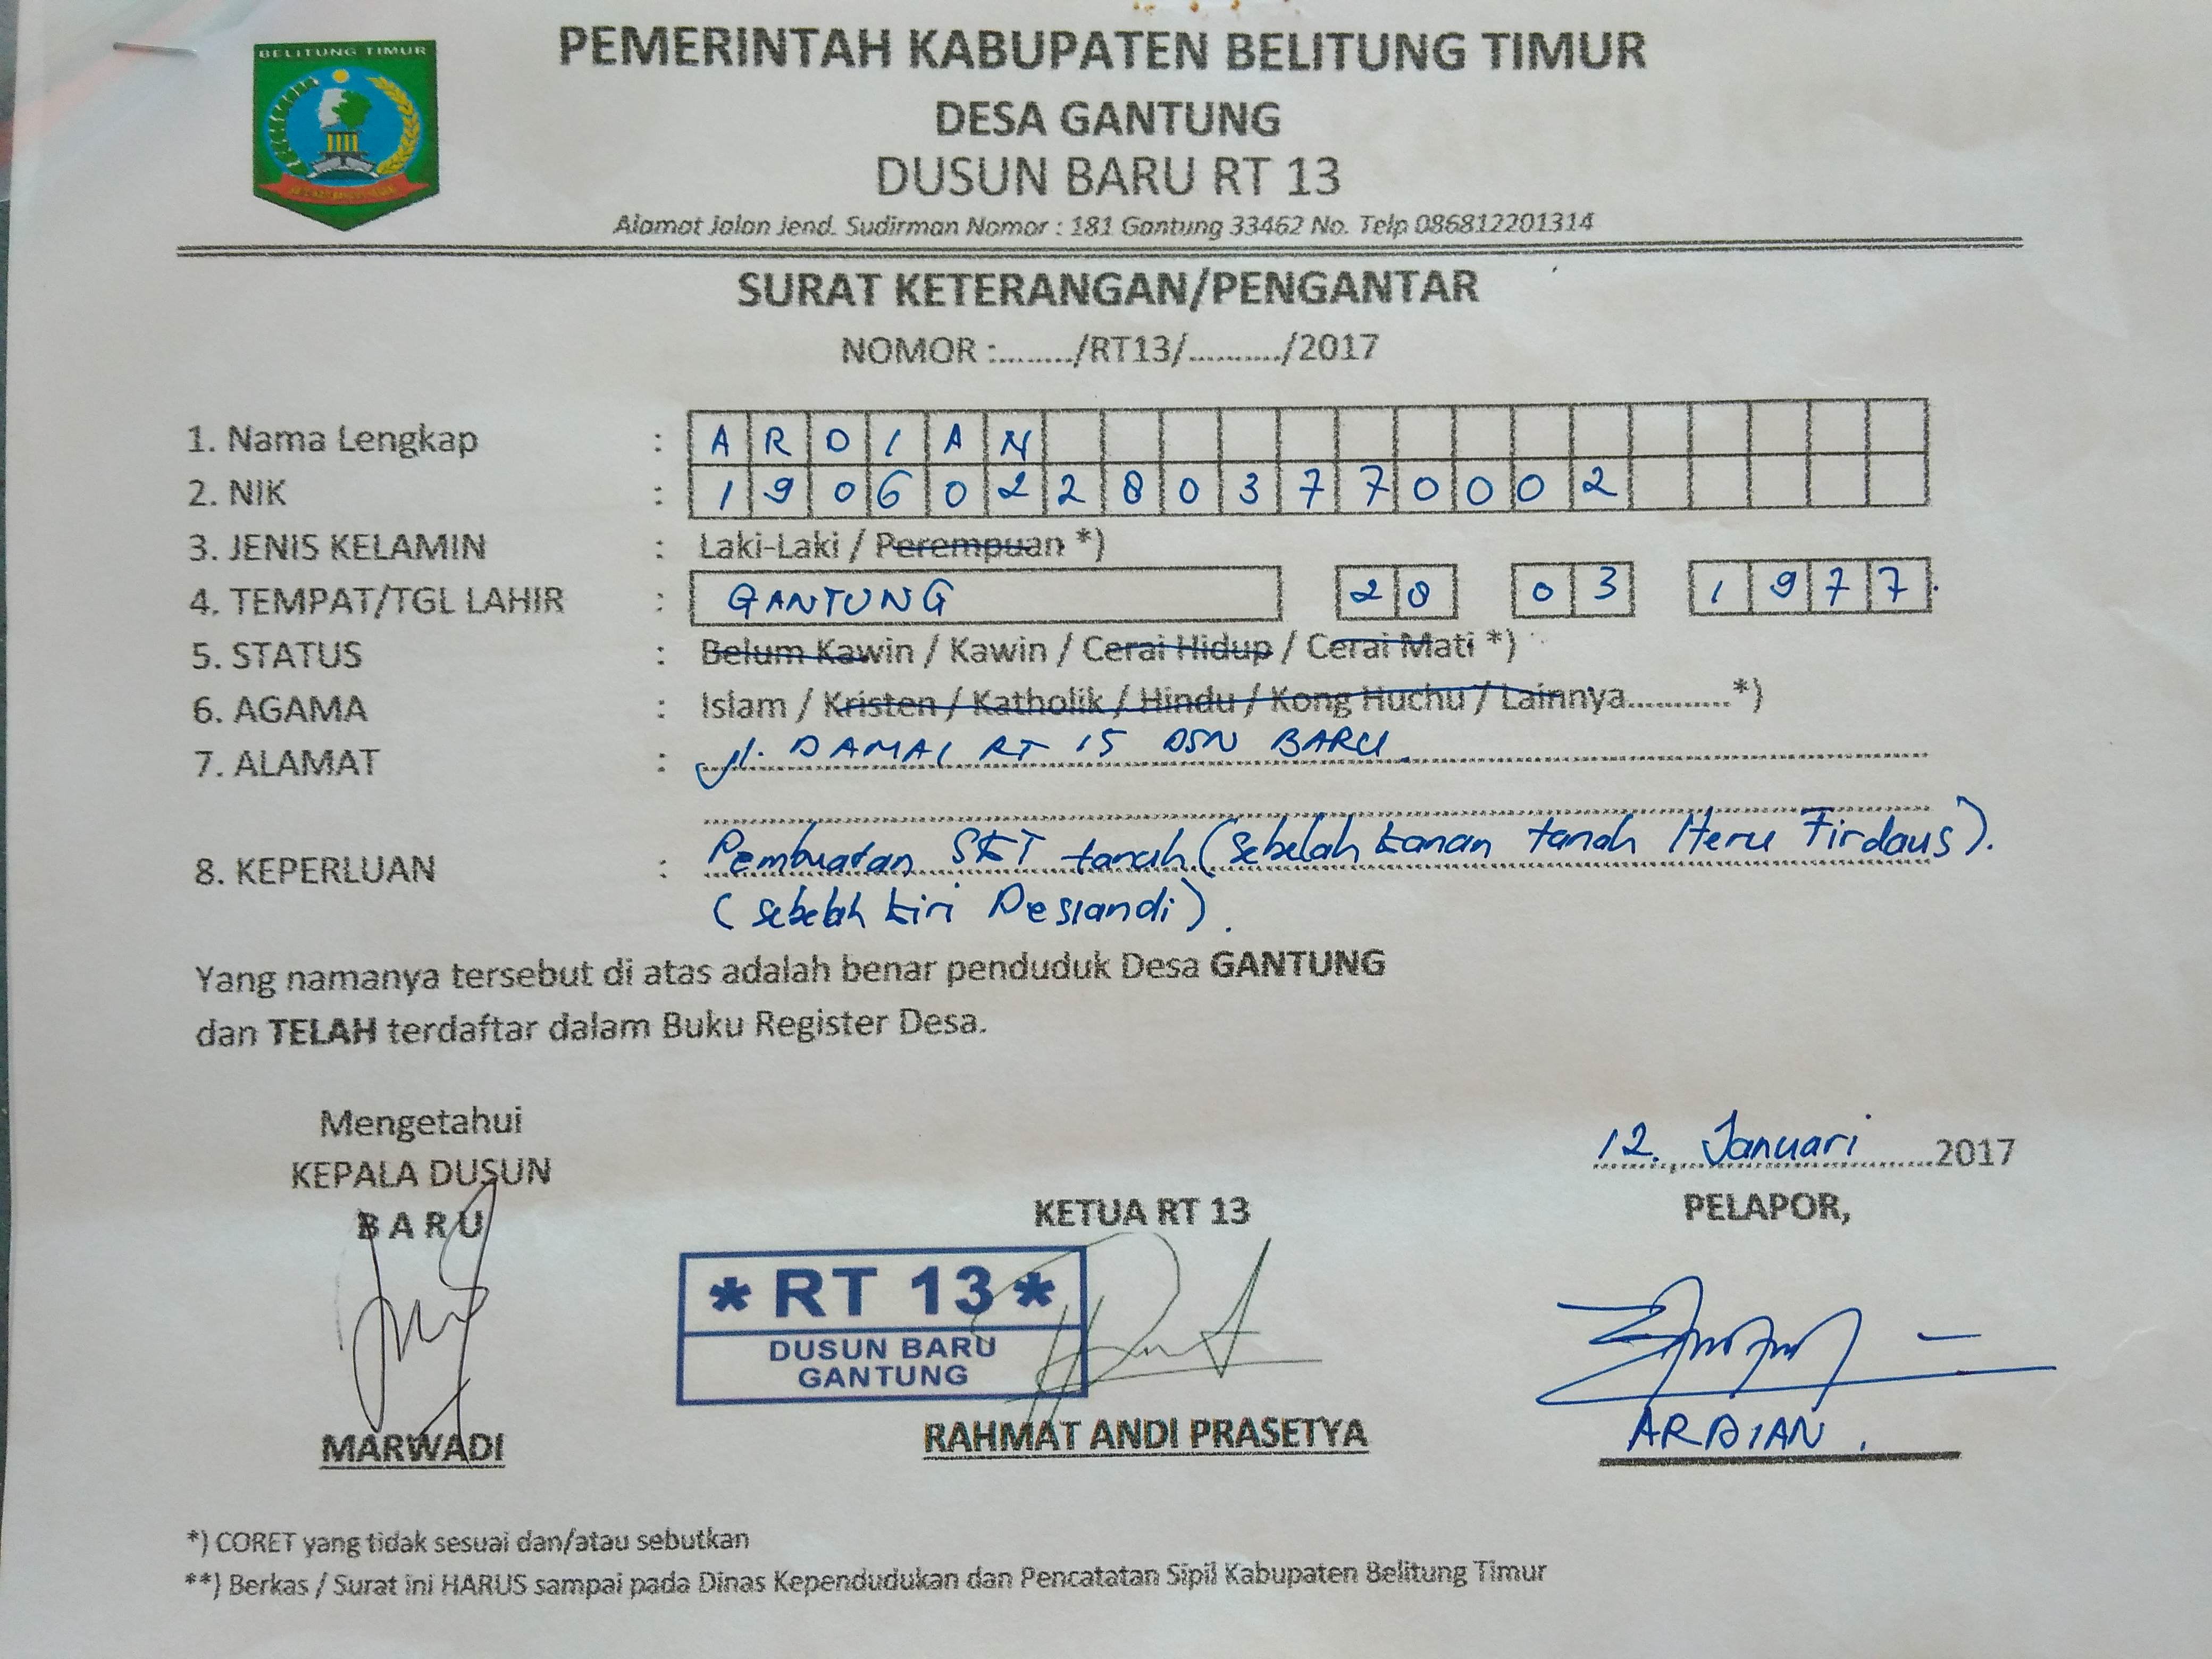 BELITUNG TIMUR
PEMERINTAH KABUPATEN BELITUNG TIMUR
DESA GANTUNG
DUSUN BARU RT 13
Alamat Jalan Jend. Sudirman Nomor : 181 Gantung 33462 No. Telp 086812201314
SURAT KETERANGAN/PENGANTAR
NOMOR :......../RT13/........../2017
1. Nama Lengkap : ARDIAN
2. NIK : 1906022803770002
3. JENIS KELAMIN : Laki-Laki / Perempuan *)
4. TEMPAT/TGL LAHIR : GANTUNG 28 03 1977.
5. STATUS : Belum Kawin / Kawin / Cerai Hidup / Cerai Mati *)
6. AGAMA : Islam / Kristen / Katholik / Hindu / Kong Huchu / Lainnya...........*)
7. ALAMAT : Jl. DAMAI RT 15 DSN BARU.
8. KEPERLUAN : Pembuatan SKT tanah (sebelah kanan tanah Heru Firdaus).
(sebelah kiri Desiandi).
Yang namanya tersebut di atas adalah benar penduduk Desa GANTUNG
dan TELAH terdaftar dalam Buku Register Desa.
12. Januari 2017
Mengetahui
KEPALA DUSUN
BARU
KETUA RT 13
PELAPOR,
* RT 13 *
DUSUN BARU
GANTUNG
MARWADI
RAHMAT ANDI PRASETYA
ARDIAN.
*) CORET yang tidak sesuai dan/atau sebutkan
**) Berkas / Surat ini HARUS sampai pada Dinas Kependudukan dan Pencatatan Sipil Kabupaten Belitung Timur